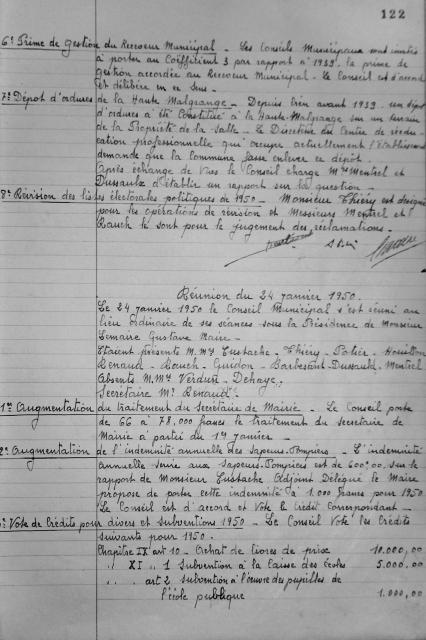 122
6° Prime de Gestion du Receveur Municipal - Les Conseils Municipaux sont invités
à porter au Coëfficient 3 par rapport à 1939, la prime de
gestion accordée au Receveur Municipal - Le Conseil est d'accord
et délibère en ce sens -
7° Dépôt d'ordures de la Haute Malgrange - Depuis bien avant 1939 un dépôt
d'ordures a été Constitué à la Haute-Malgrange sur un terrain
de la Propriété de la Salle - Le Directeur du Centre de réédu-
cation professionnelle qui occupe actuellement l'établissement
demande que la Commune fasse enlever ce dépôt.
Après échange de Vues le Conseil charge Mrs Mentrel et
Dusaulx d'établir un rapport sur la question -
8° Révision des listes électorales politiques de 1950 - Monsieur Thiéry est désigné
pour les opérations de révision et Messieurs Mentrel et
Bauch le sont pour le jugement des réclamations -
Réunion du 24 Janvier 1950.
Le 24 Janvier 1950 le Conseil Municipal s'est réuni au
lieu ordinaire de ses séances sous la Présidence de Monsieur
Lemaire Gustave Maire -
Etaient présents M.Mrs Eustache - Thiéry - Potier - Houillon
Renaud - Bauch - Guidon - Barbesant - Dusaulx - Mentrel
Absents M.Mrs Verdun - Dehaye,
Secrétaire Mr Renaud -
1° Augmentation du traitement du Secrétaire de Mairie - Le Conseil porte
de 66 à 78,000 francs le traitement du secrétaire de
Mairie à partir du 1er janvier -
2° Augmentation de l'indemnité annuelle des Sapeurs-Pompiers - L'indemnité
annuelle servie aux Sapeurs-Pompiers est de 600,00, sur le
rapport de Monsieur Eustache Adjoint Délégué le Maire
propose de porter cette indemnité à 1.000 francs pour 1950
Le Conseil est d'accord et Vote le Crédit Correspondant -
Vote de Crédits pour divers et Subventions 1950 - Le Conseil Vote les Crédits
suivants pour 1950.
Chapitre IX art 10 - Achat de livres de prix 10.000,00
" XI " 1 Subvention à la Caisse des écoles 5.000,00
" " art 2 Subvention à l'œuvre des pupilles de
l'école publique 1.000,00